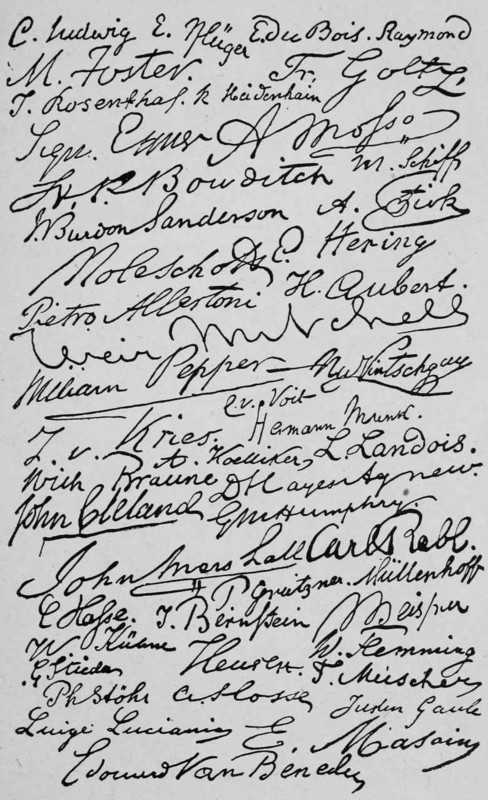 C. Ludwig E. Pflüger E. du Bois-Raymond
M. Foster. Fr. Goltz.
J. Rosenthal. R Heidenhain
Sigm. Exner A Mosso
M. Schiff
H. P. Bowditch
J. Burdon Sanderson A. Fick
Moleschott E. Hering
Pietro Albertoni H. Aubert.
Weir Mitchell
William Pepper M. v. Vintschgau
C. v. Voit
J. v. Kries. Hermann Munk.
A. Koelliker L. Landois.
Wilh Braune D Hayes Agnew.
John Cleland G M Humphry
John Marshall Carl Rabl.
P Grützner. Müllenhoff
C Hasse. J. Bernstein Meissner
W. Kühne W. Flemming
Hensen. F. Miescher
Ph Stöhr A. Mosso Justus Gaule
Luigi Luciani E. Masoin
Edouard Van Beneden